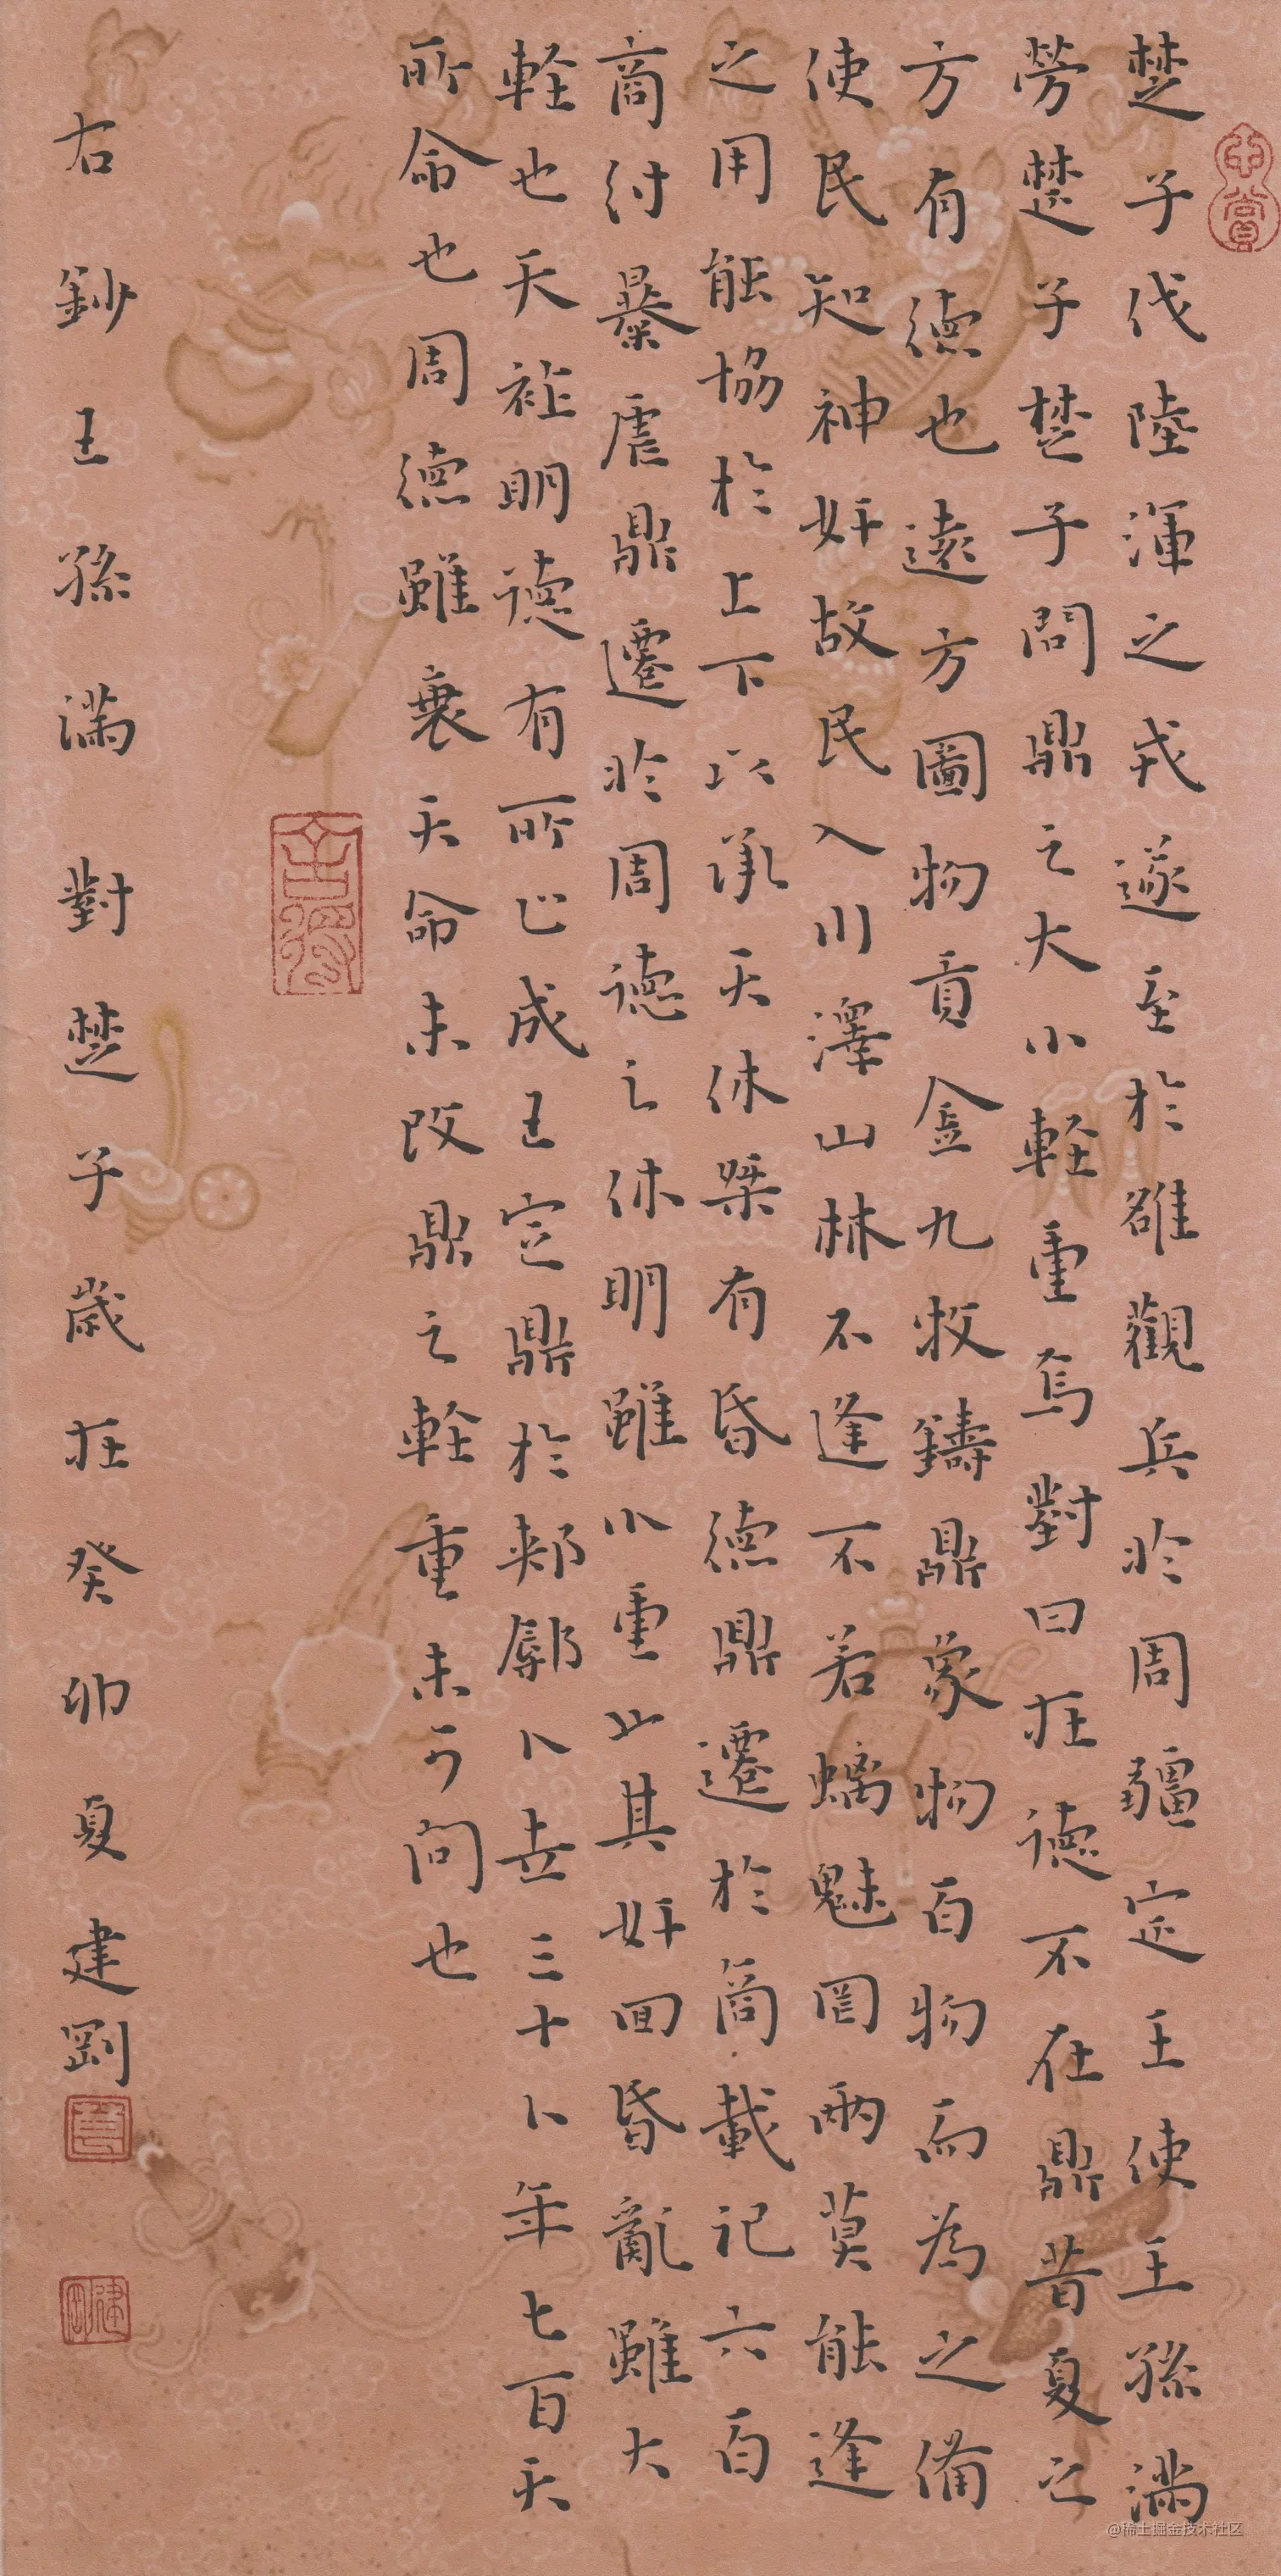 楚子伐陸渾之戎遂至於雒觀兵於周疆定王使王孫滿
勞楚子楚子問鼎之大小輕重焉對曰在德不在鼎昔夏之
方有德也遠方圖物貢金九牧鑄鼎象物百物而為之備
使民知神奸故民入川澤山林不逢不若螭魅罔兩莫能逢
之用能協於上下以承天休桀有昏德鼎遷於商載記六百
商紂暴虐鼎遷於周德之休明雖小重也其奸回昏亂雖大
輕也天祚明德有所止成王定鼎於郟鄏卜世三十卜年七百天
所命也周德雖衰天命未改鼎之輕重未可問也
右鈔王孫滿對楚子歲在癸卯夏建剛
@稀土掘金技术社区